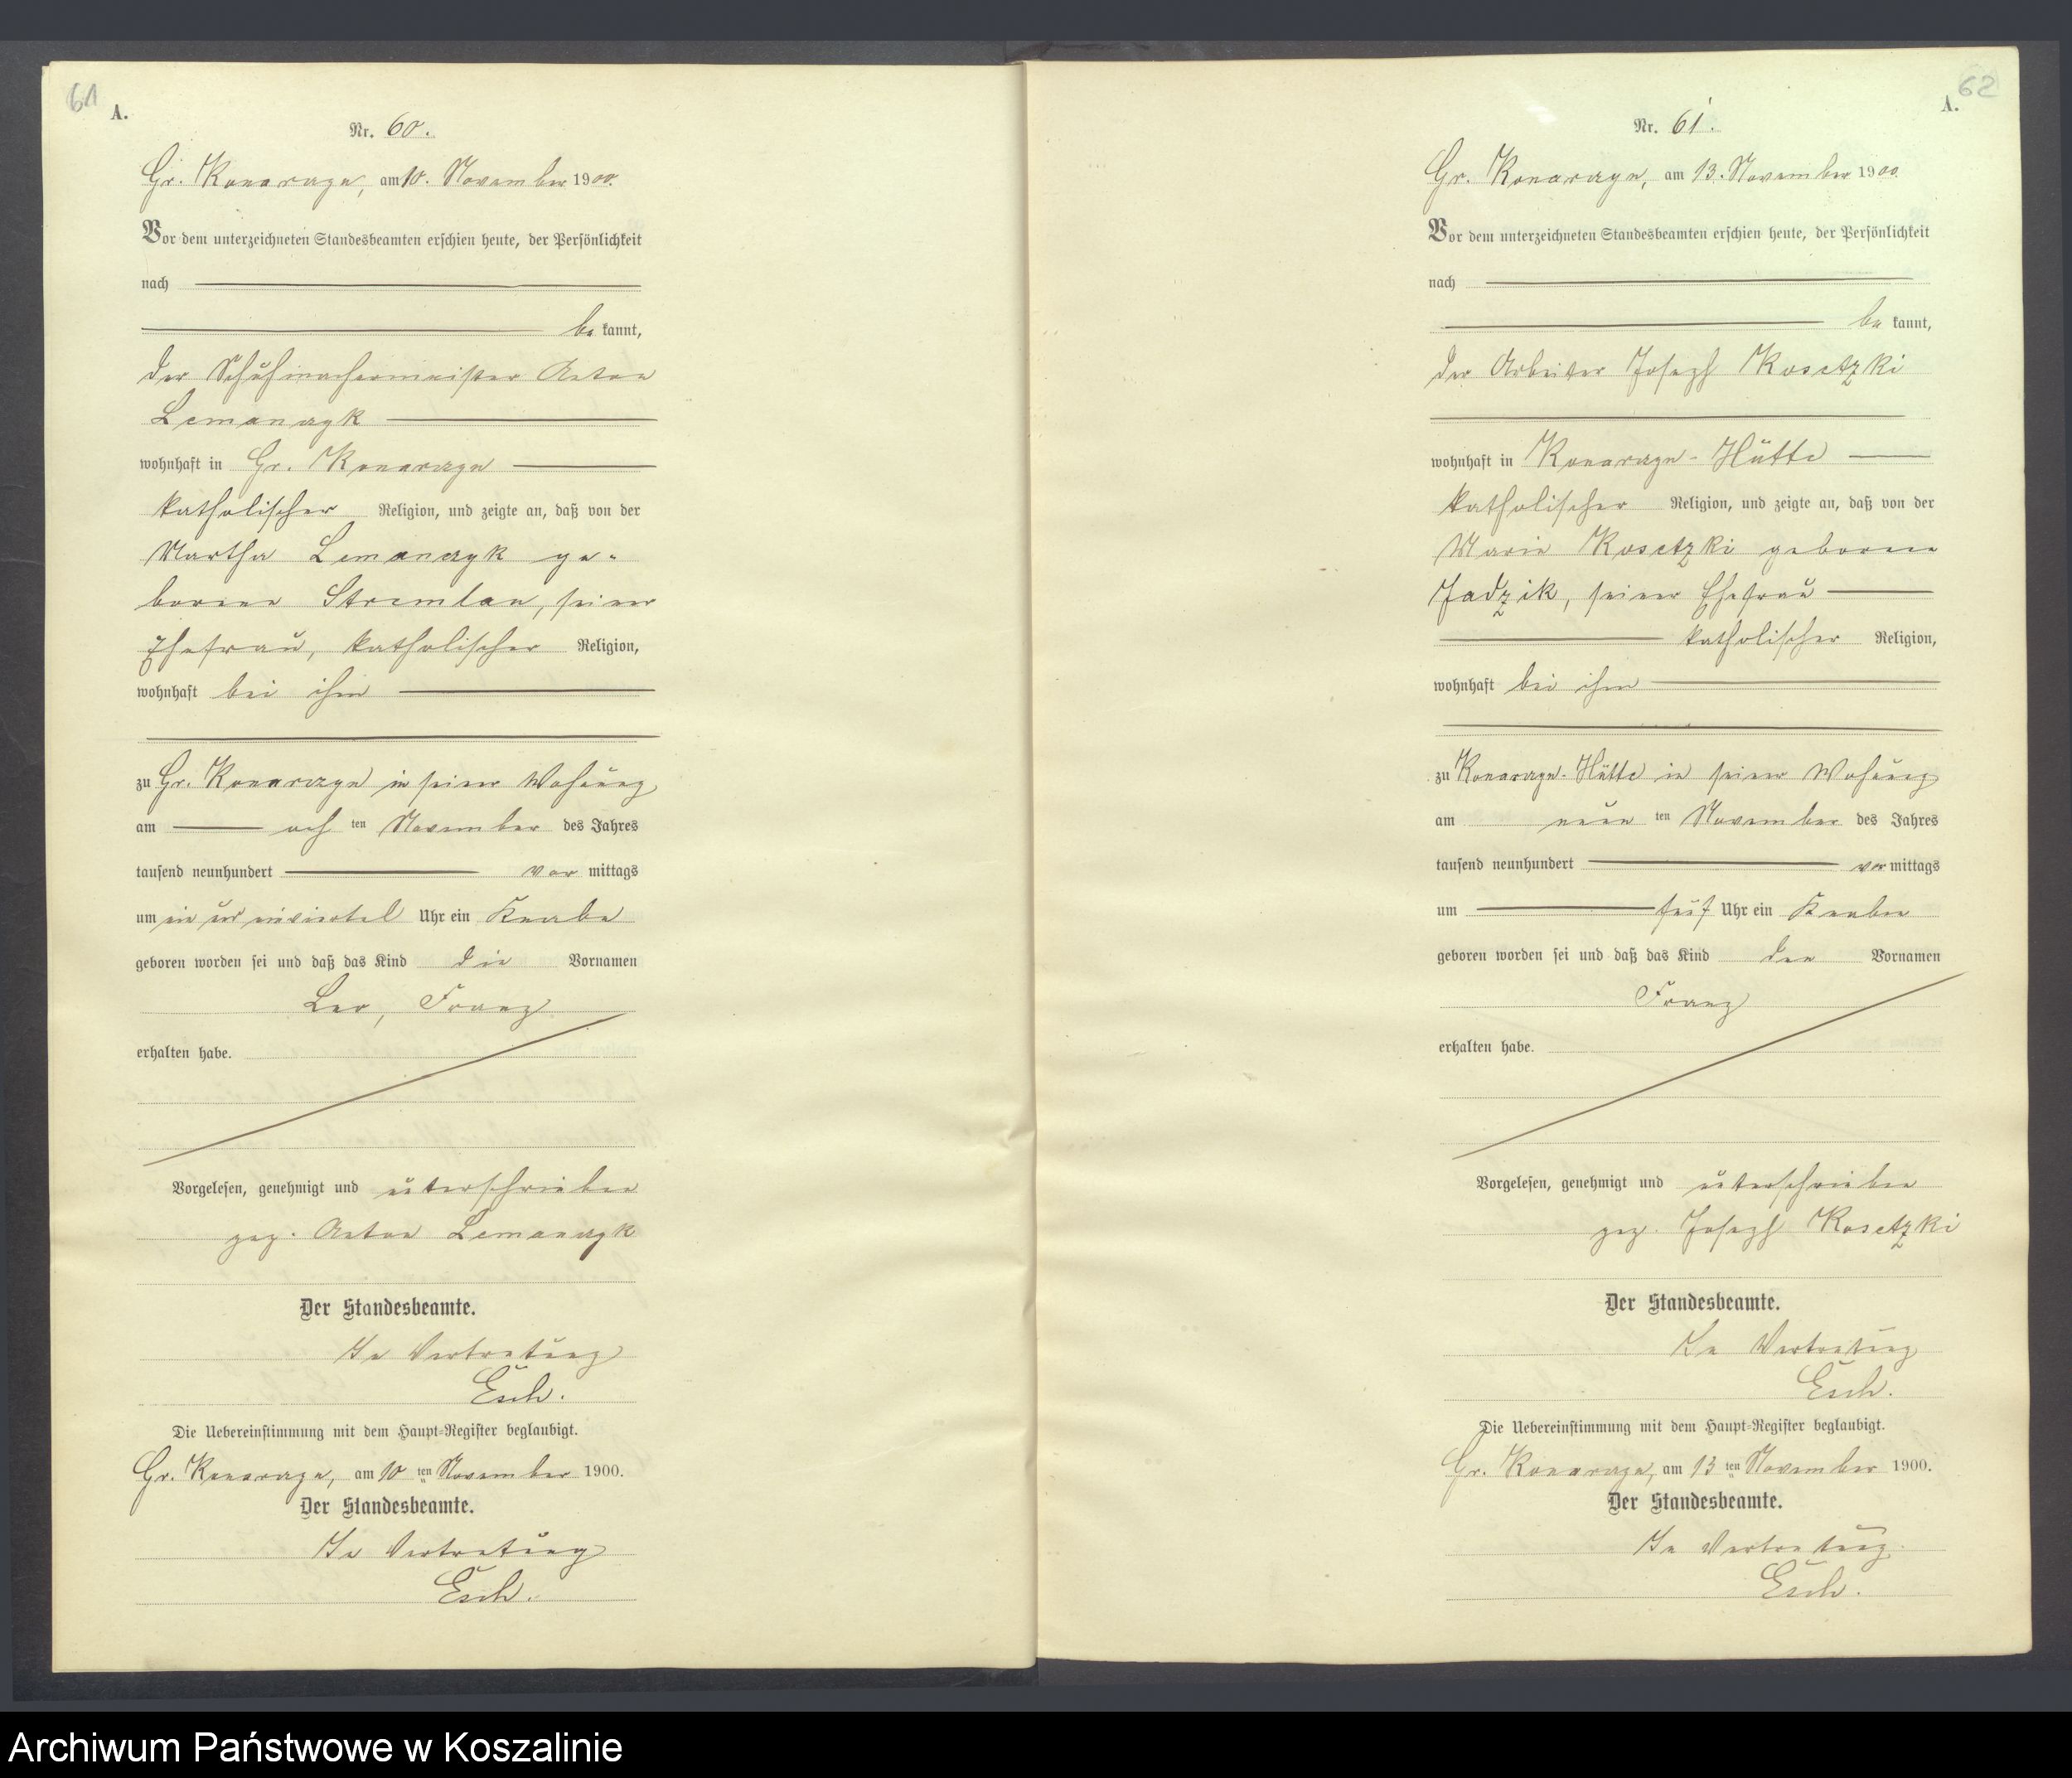 61
A.
Nr. 60.
Gr. Konarczyn, am 10. November 1900.
Vor dem unterzeichneten Standesbeamten erschien heute, der Persönlichkeit
nach
be kannt,
der Schuhmachermeister Anton
Lemanczyk
wohnhaft in Gr. Konarczyn
katholischer Religion, und zeigte an, daß von der
Martha Lemanczyk ge-
borene Stremlau, seiner
Ehefrau, katholischer Religion,
wohnhaft bei ihm
zu Gr. Konarczyn in seiner Wohnung
am ach ten November des Jahres
tausend neunhundert vor mittags
um ein und einviertel Uhr ein Knabe
geboren worden sei und daß das Kind die Vornamen
Leo, Franz
erhalten habe.
Vorgelesen, genehmigt und unterschrieben
gez. Anton Lemanczyk
Der Standesbeamte.
In Vertretung
Esch.
Die Uebereinstimmung mit dem Haupt-Register beglaubigt.
Gr. Konarczyn, am 10 ten November 1900.
Der Standesbeamte.
In Vertretung
Esch.
62
A.
Nr. 61.
Gr. Konarczyn, am 13. November 1900
Vor dem unterzeichneten Standesbeamten erschien heute, der Persönlichkeit
nach
be kannt,
der Arbeiter Joseph Kosetzki
wohnhaft in Konarczyn-Hütte
katholischer Religion, und zeigte an, daß von der
Marie Kosetzki geborene
Jadzik, seiner Ehefrau
katholischer Religion,
wohnhaft bei ihm
zu Konarczyn-Hütte in seiner Wohnung
am neun ten November des Jahres
tausend neunhundert vor mittags
um fünf Uhr ein Knabe
geboren worden sei und daß das Kind den Vornamen
Franz
erhalten habe.
Vorgelesen, genehmigt und unterschrieben
gez. Joseph Kosetzki
Der Standesbeamte.
In Vertretung
Esch.
Die Uebereinstimmung mit dem Haupt-Register beglaubigt.
Gr. Konarczyn, am 13 ten November 1900.
Der Standesbeamte.
In Vertretung
Esch.
Archiwum Państwowe w Koszalinie